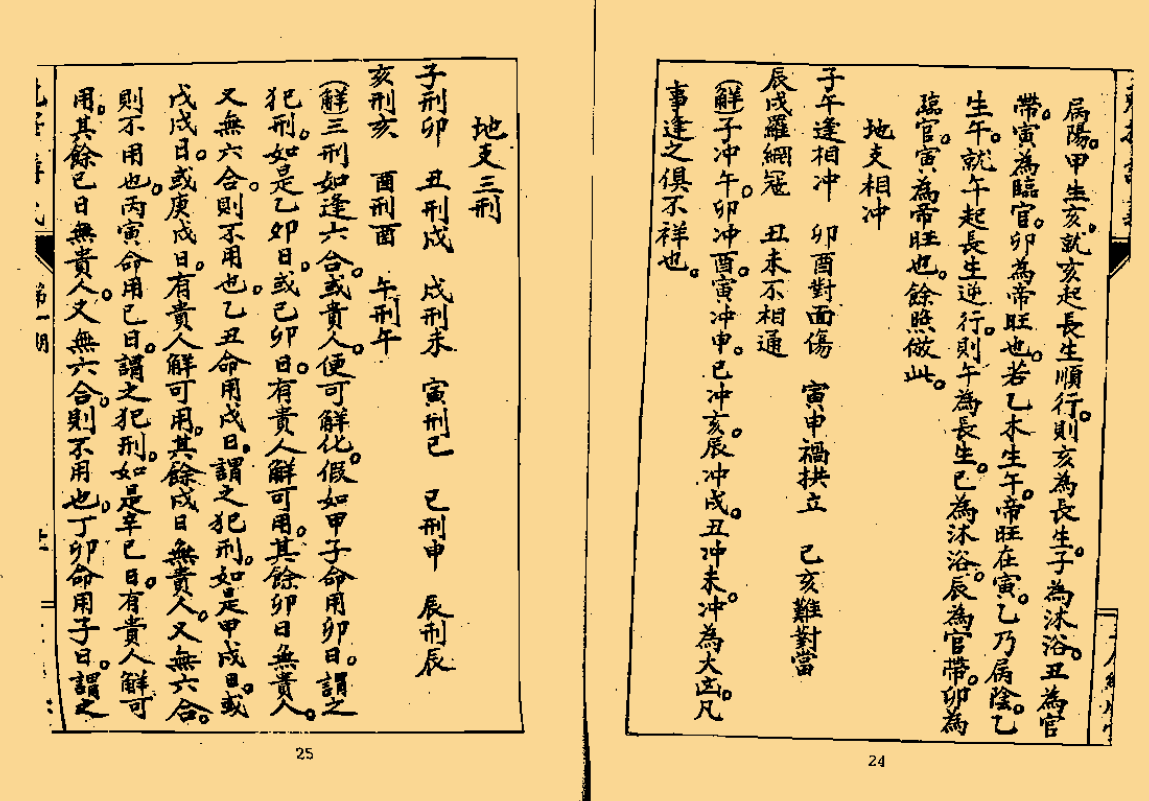 属陽。甲生亥。就亥起長生順行。則亥為長生。子為沐浴。丑為官
帶。寅為臨官。卯為帝旺也。若乙木生午。帝旺在寅。乙乃属陰。乙
生午。就午起長生逆行。則午為長生。巳為沐浴。辰為官帶。卯為
臨官。寅為帝旺也。餘照倣此。
地支相冲
子午逢相冲 卯酉對面傷 寅申禍拱立 己亥難對當
辰戌羅網冦 丑未不相通
(解)子冲午。卯冲酉。寅冲申。巳冲亥。辰冲戌。丑冲未。冲為大凶。凡
事逢之俱不祥也。
24
地支三刑
子刑卯 丑刑戌 戌刑未 寅刑巳 巳刑申 辰刑辰
亥刑亥 酉刑酉 午刑午
(解)三刑如逢六合。或貴人。便可解化。假如甲子命用卯日。謂之
犯刑。如是乙卯日。或己卯日。有貴人解可用。其餘卯日無貴人。
又無六合。則不用也。乙丑命用戌日。謂之犯刑。如是甲戌日。或
戊戌日。或庚戌日。有貴人解可用。其餘戌日無貴人。又無六合。
則不用也。丙寅命用巳日。謂之犯刑。如是辛巳日。有貴人解可
用。其餘巳日無貴人。又無六合。則不用也。丁卯命用子日。謂之
第一期
25